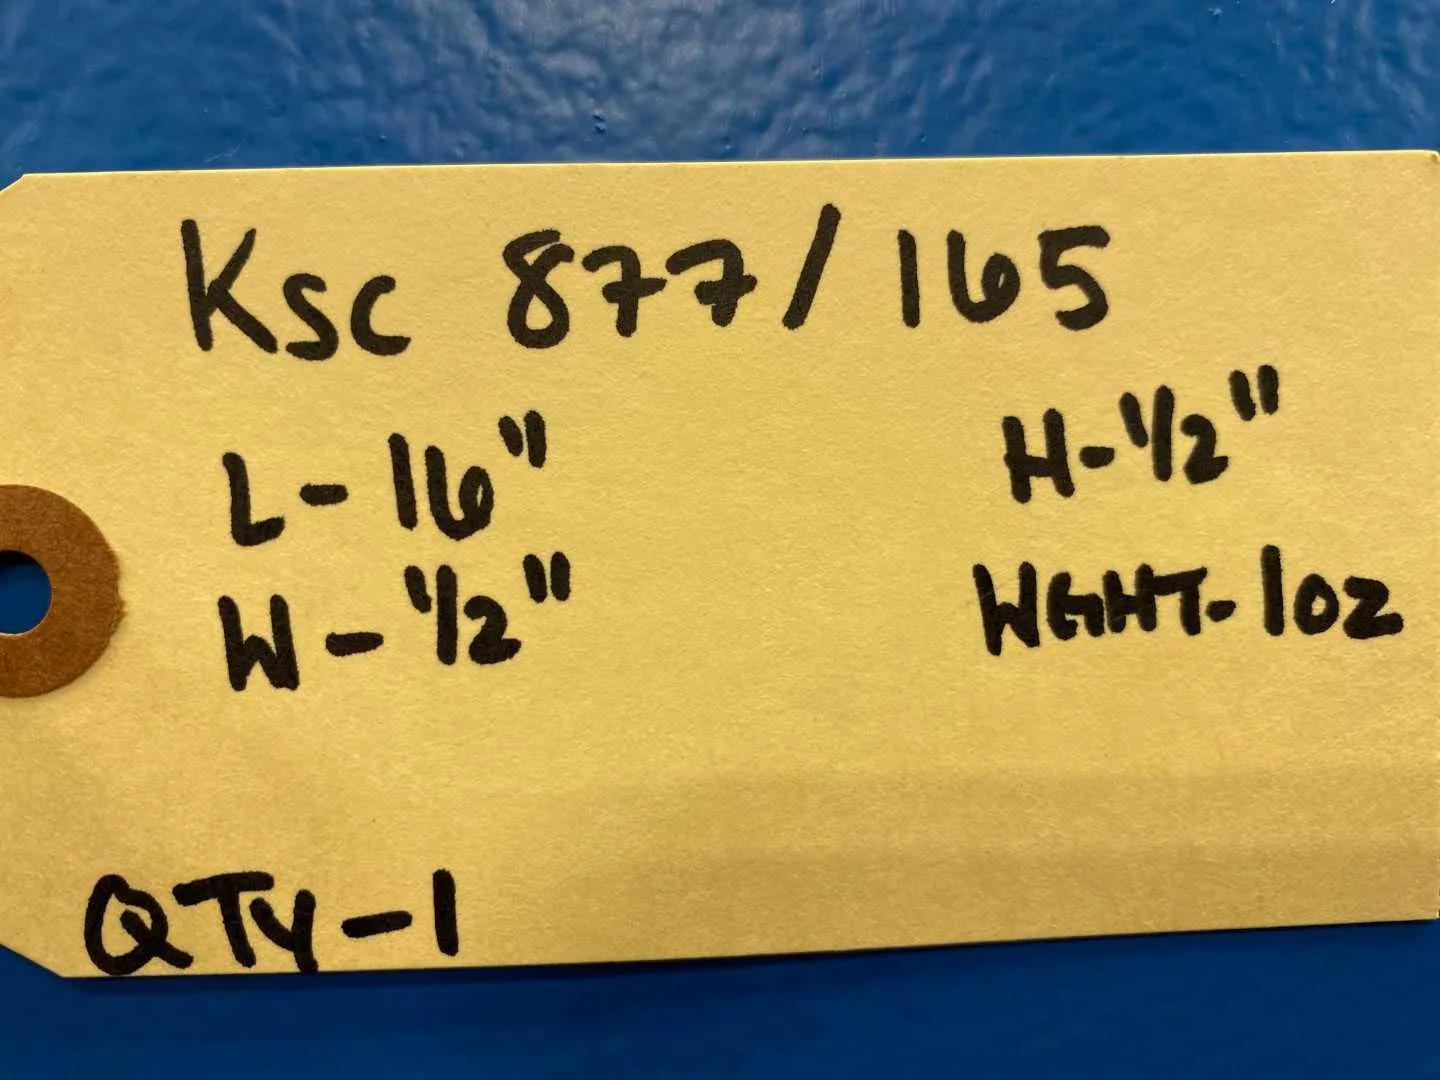 Ksc 877/165
L-16" H-1/2"
W-1/2" WGHT-1oz
QTy-1